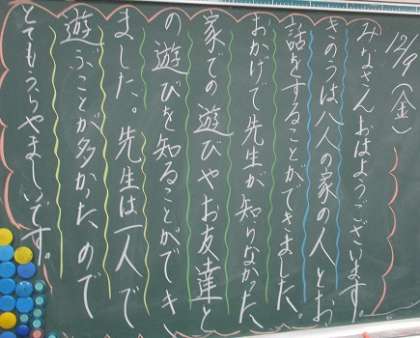 12/9(金)
みなさんおはようございます。
きのうは八人の家の人とお
話をすることができました。
おかげで先生が知らなかった、
家での遊びやお友達と
の遊びを知ることができ
ました。先生は一人で
遊ぶことが多かたので
とてもうらやましいです。